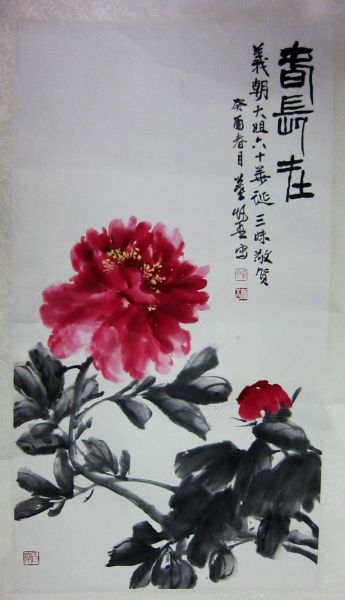 春長在
義朝大姐六十華誕三妹敬賀
癸酉春月
寫